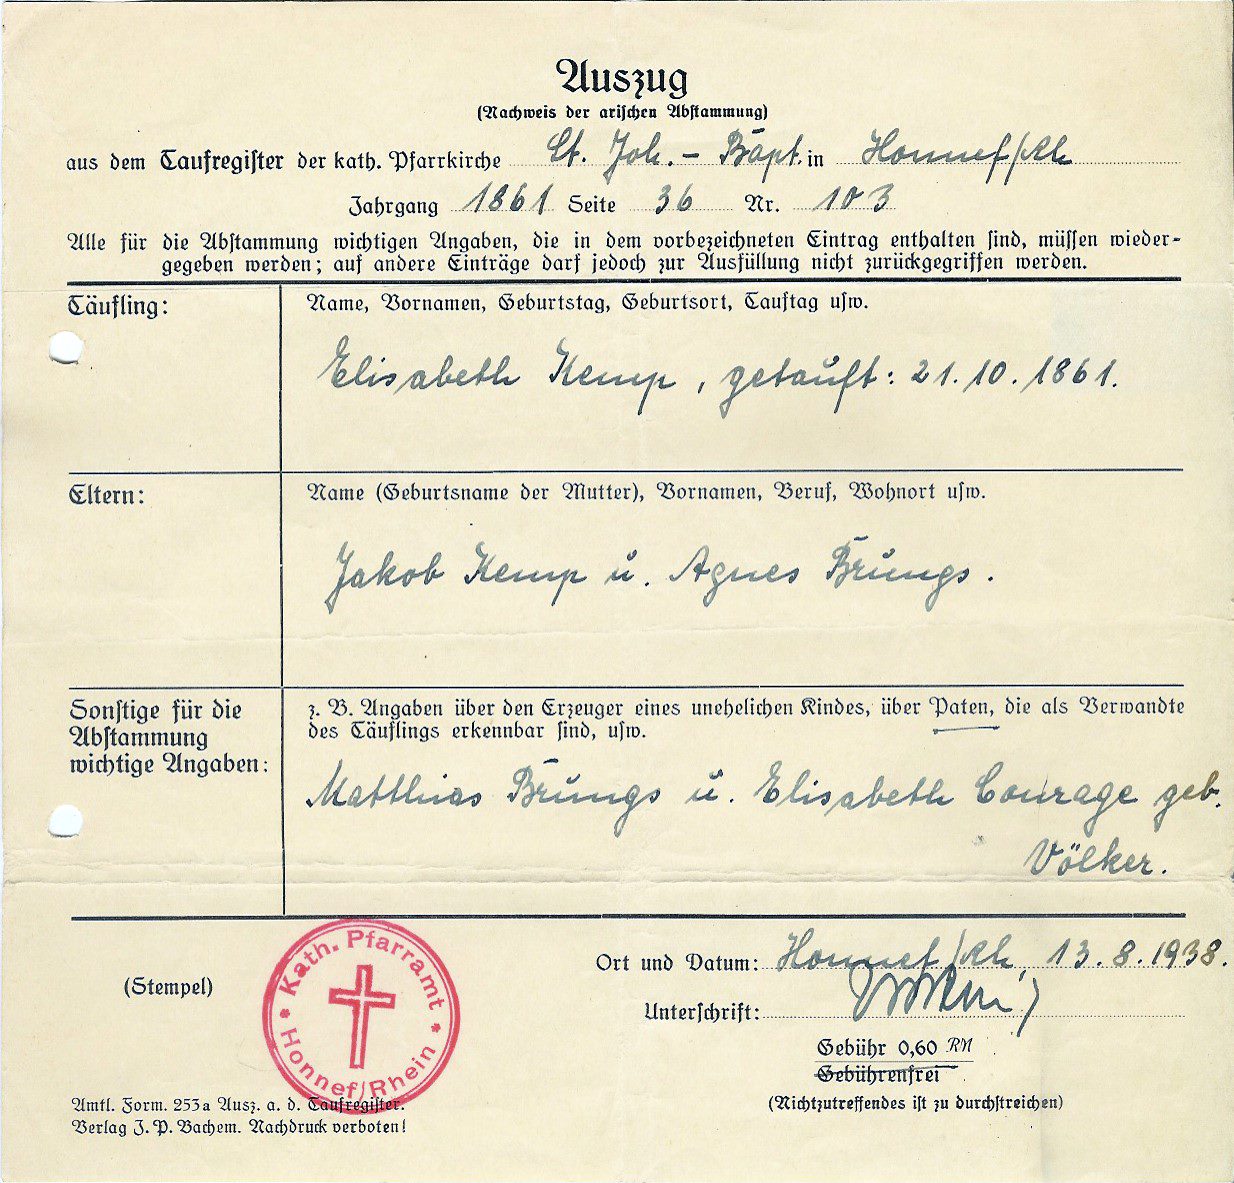 Auszug
(Nachweis der arischen Abstammung)
aus dem Taufregister der kath. Pfarrkirche St. Joh.-Bapt. in Honnef/Rh
Jahrgang 1861 Seite 36 Nr. 103
Alle für die Abstammung wichtigen Angaben, die in dem vorbezeichneten Eintrag enthalten sind, müssen wieder-
gegeben werden; auf andere Einträge darf jedoch zur Ausfüllung nicht zurückgegriffen werden.
Täufling:
Name, Vornamen, Geburtstag, Geburtsort, Tauftag usw.
Elisabeth Kemp, getauft: 21.10.1861.
Eltern:
Name (Geburtsname der Mutter), Vornamen, Beruf, Wohnort usw.
Jakob Kemp u. Agnes Brungs.
Sonstige für die
Abstammung
wichtige Angaben:
z. B. Angaben über den Erzeuger eines unehelichen Kindes, über Paten, die als Verwandte
des Täuflings erkennbar sind, usw.
Matthias Brungs u. Elisabeth Courage geb.
Völker.
(Stempel)
Kath. Pfarramt
* Honnef/Rhein *
Ort und Datum: Honnef/Rh, 13.8.1938.
Unterschrift:
Gebühr 0,60 RM
Gebührenfrei
(Nichtzutreffendes ist zu durchstreichen)
Amtl. Form. 253a Ausz. a. d. Taufregister.
Verlag J. P. Bachem. Nachdruck verboten!